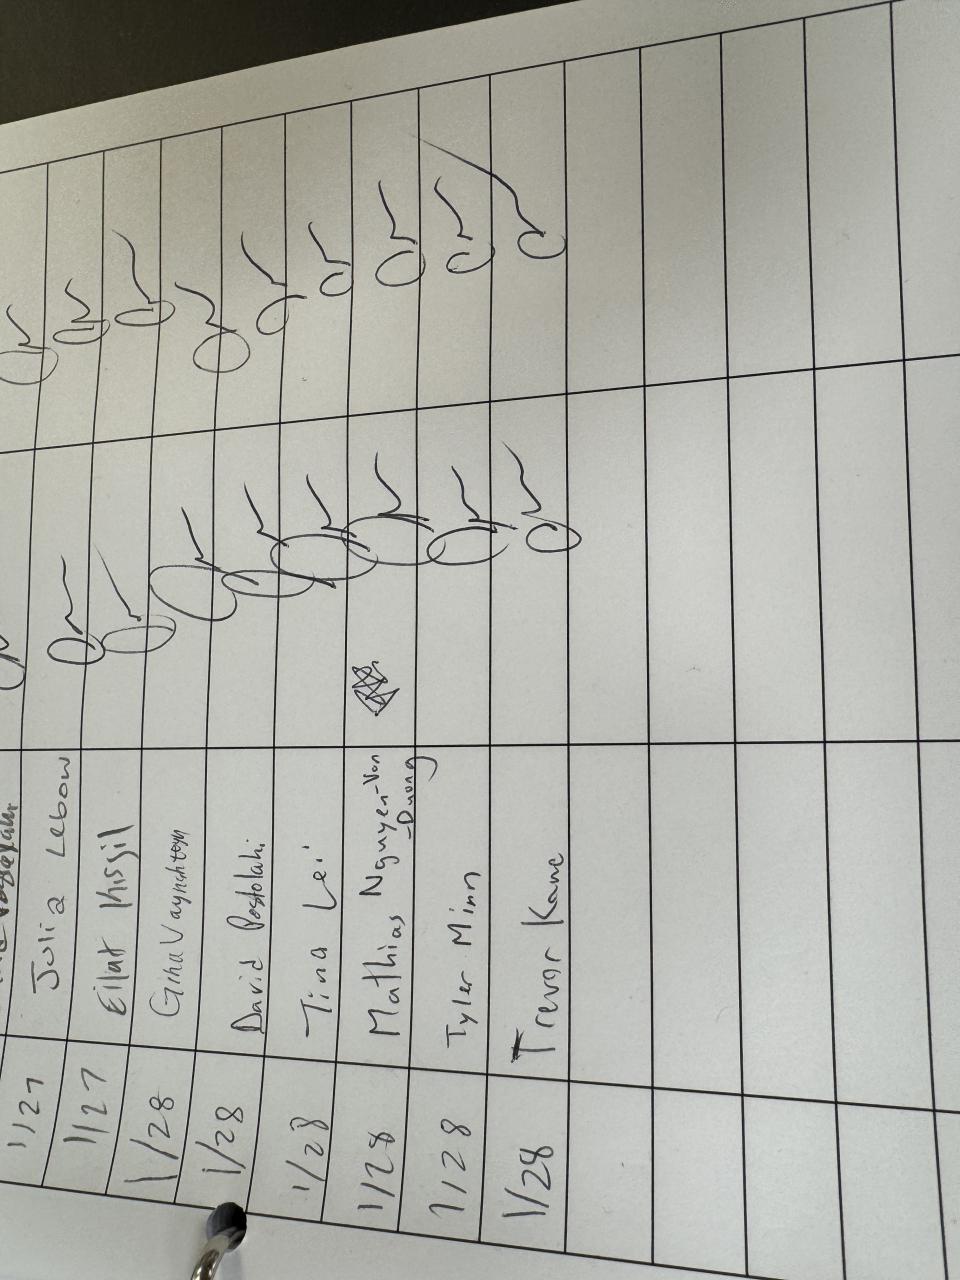 1/27 Julia Lebow
1/27 Eilat Kissil
1/28 Gina Vaynshteyn
1/28 David Postolahi
1/28 Tina Lei
1/28 Mathias Nguyen-Van
-Duong
1/28 Tyler Minn
1/28 Trevor Kane